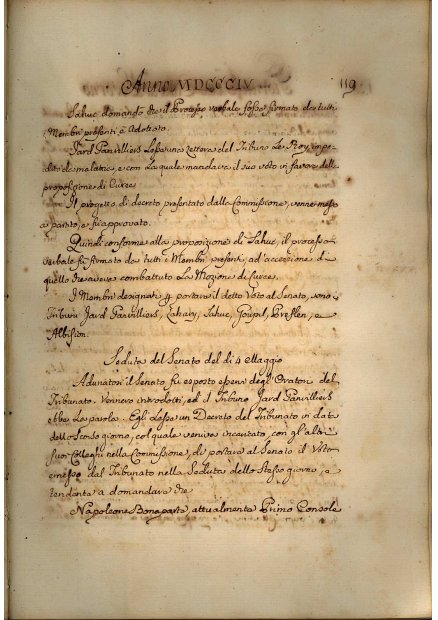 Anno MDCCCIV
119
Sahuc domandò che il Processo verbale fosse firmato da tutti i
Membri presenti e adottato.
Jard Panvilliers Lesse una Lettera del Tribuno Le Roy, impe-
dito da malattia, e con la quale mandava il suo voto in favore della
proposizione di Curée.
Il progetto di decreto presentato dalla Commissione, venne messo
a partito, e fu approvato.
Quindi conforme alla proposizione di Sahuc, il processo
verbale fu firmato da tutti i Membri presenti, ad eccezione di
quello che aveva combattuto La Mozione di Curée.
I Membri designati a portare il detto Voto al Senato, sono i
Tribuni Jard Panvilliers, Sahuc, Goupil, e
Albisson.
Seduta del Senato del dì 4 Maggio
Adunatosi il Senato fu esposto essere degl'Oratori del
Tribunato. Vennero introdotti, ed il Tribuno Jard Panvilliers
ebbe La parola. Egli Lesse un Decreto del Tribunato in data
dello scorso giorno, col quale veniva incaricato, con gl'altri
suoi Colleghi nella Commissione, di portare al Senato il Voto
emesso dal Tribunato nella Seduta dello Stesso giorno, e
tendente a domandare che
Napoleone Bonaparte attualmente Primo Console